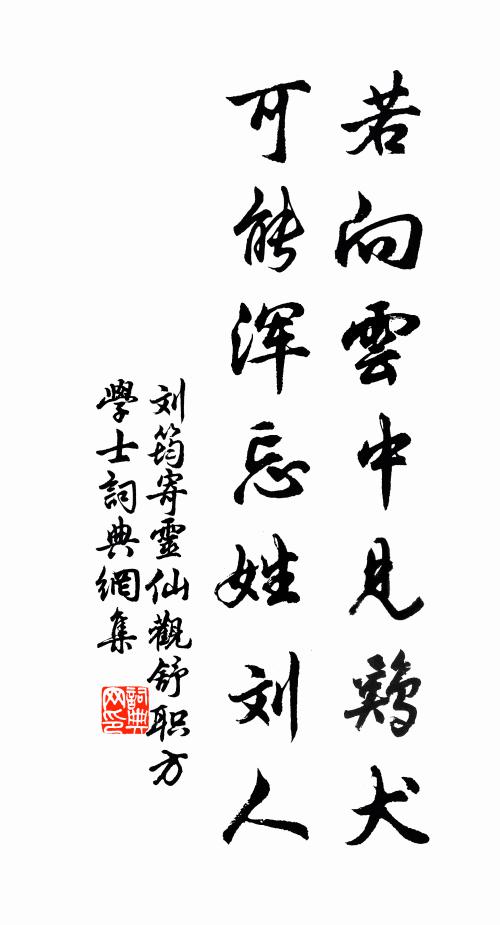 若向雲中見鷄犬
可能浑忘姓刘人
刘筠寄靈仙觀舒职方
學士詞典網集
詞典
网印